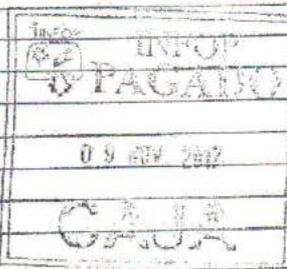 INFOP
INFOP
PAGADO
09 NOV 2012
CAJA